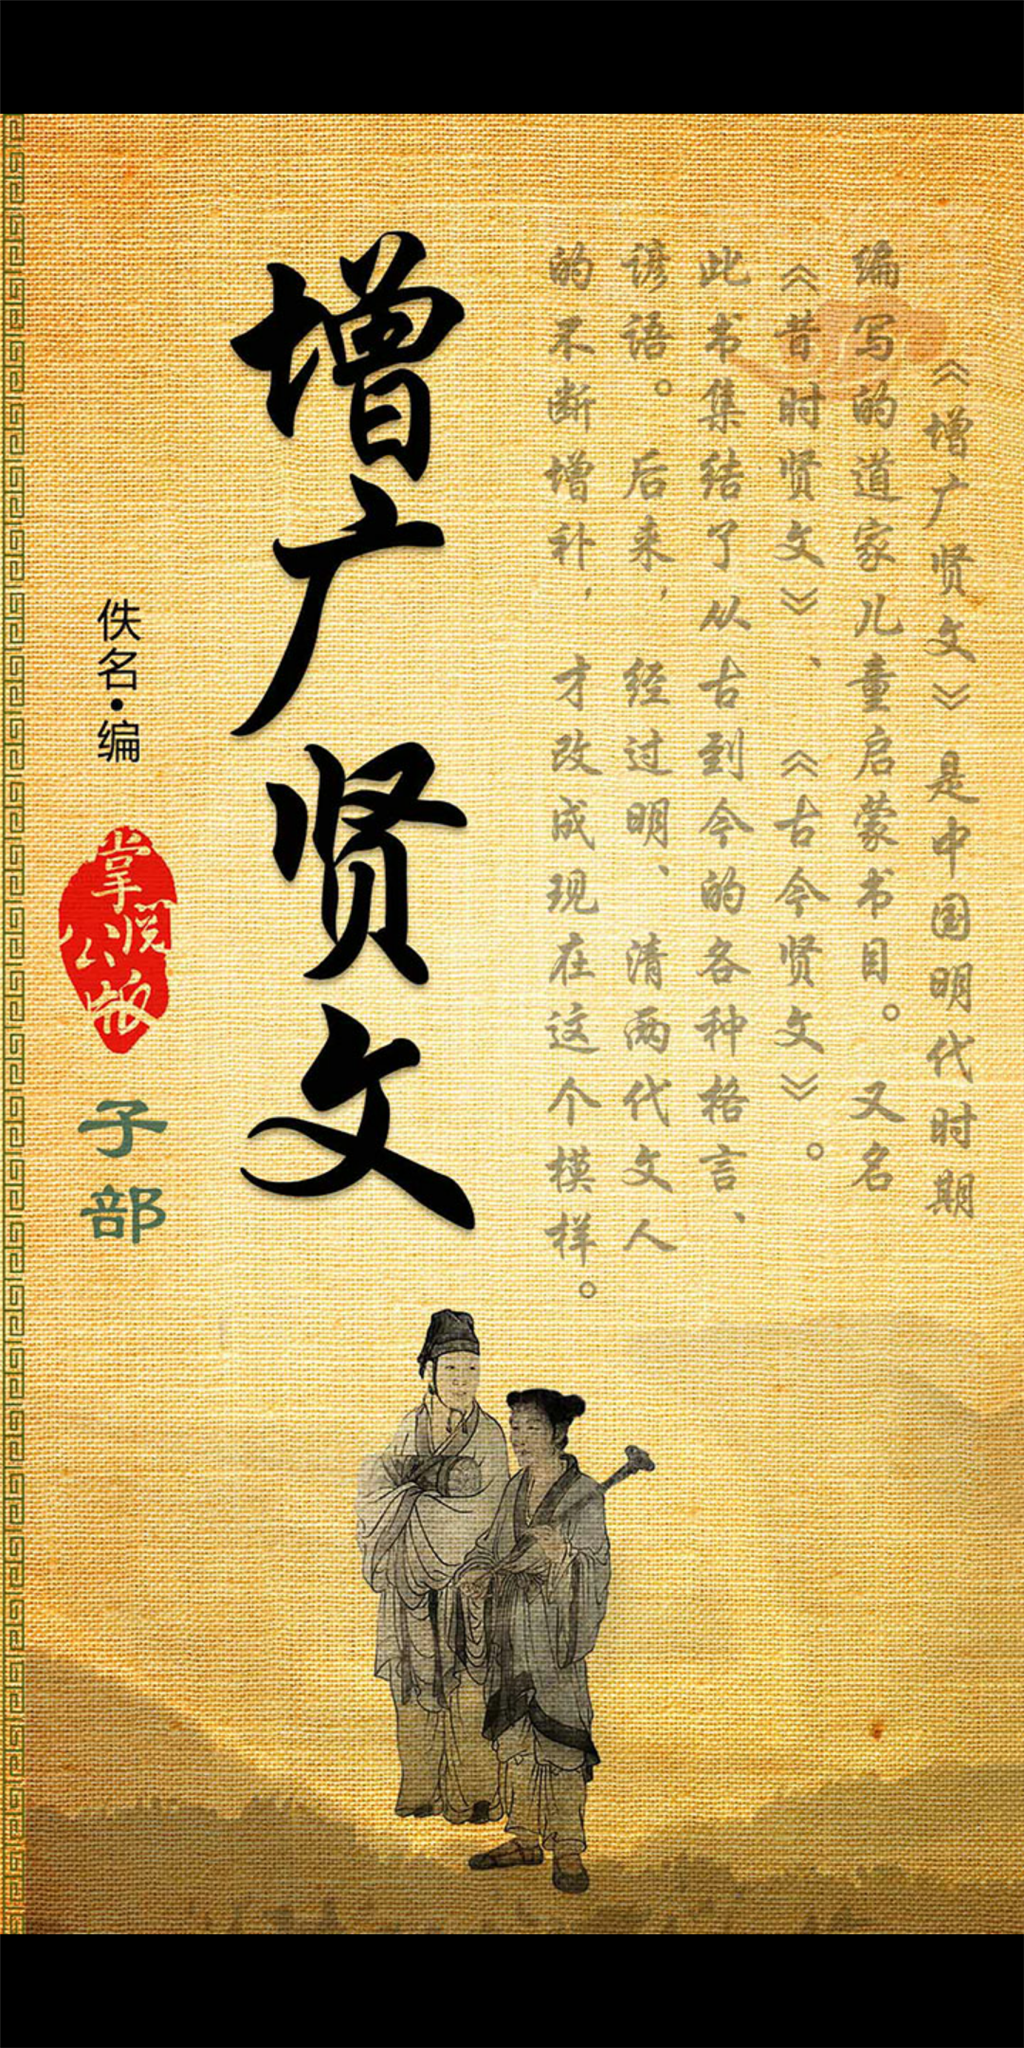 《增广贤文》是中国明代时期
编写的道家儿童启蒙书目。又名
《昔时贤文》、《古今贤文》。
此书集结了从古到今的各种格言、
谚语。后来，经过明、清两代文人
的不断增补，才改成现在这个模样。
增广贤文
佚名·编
掌阅
公版
子部